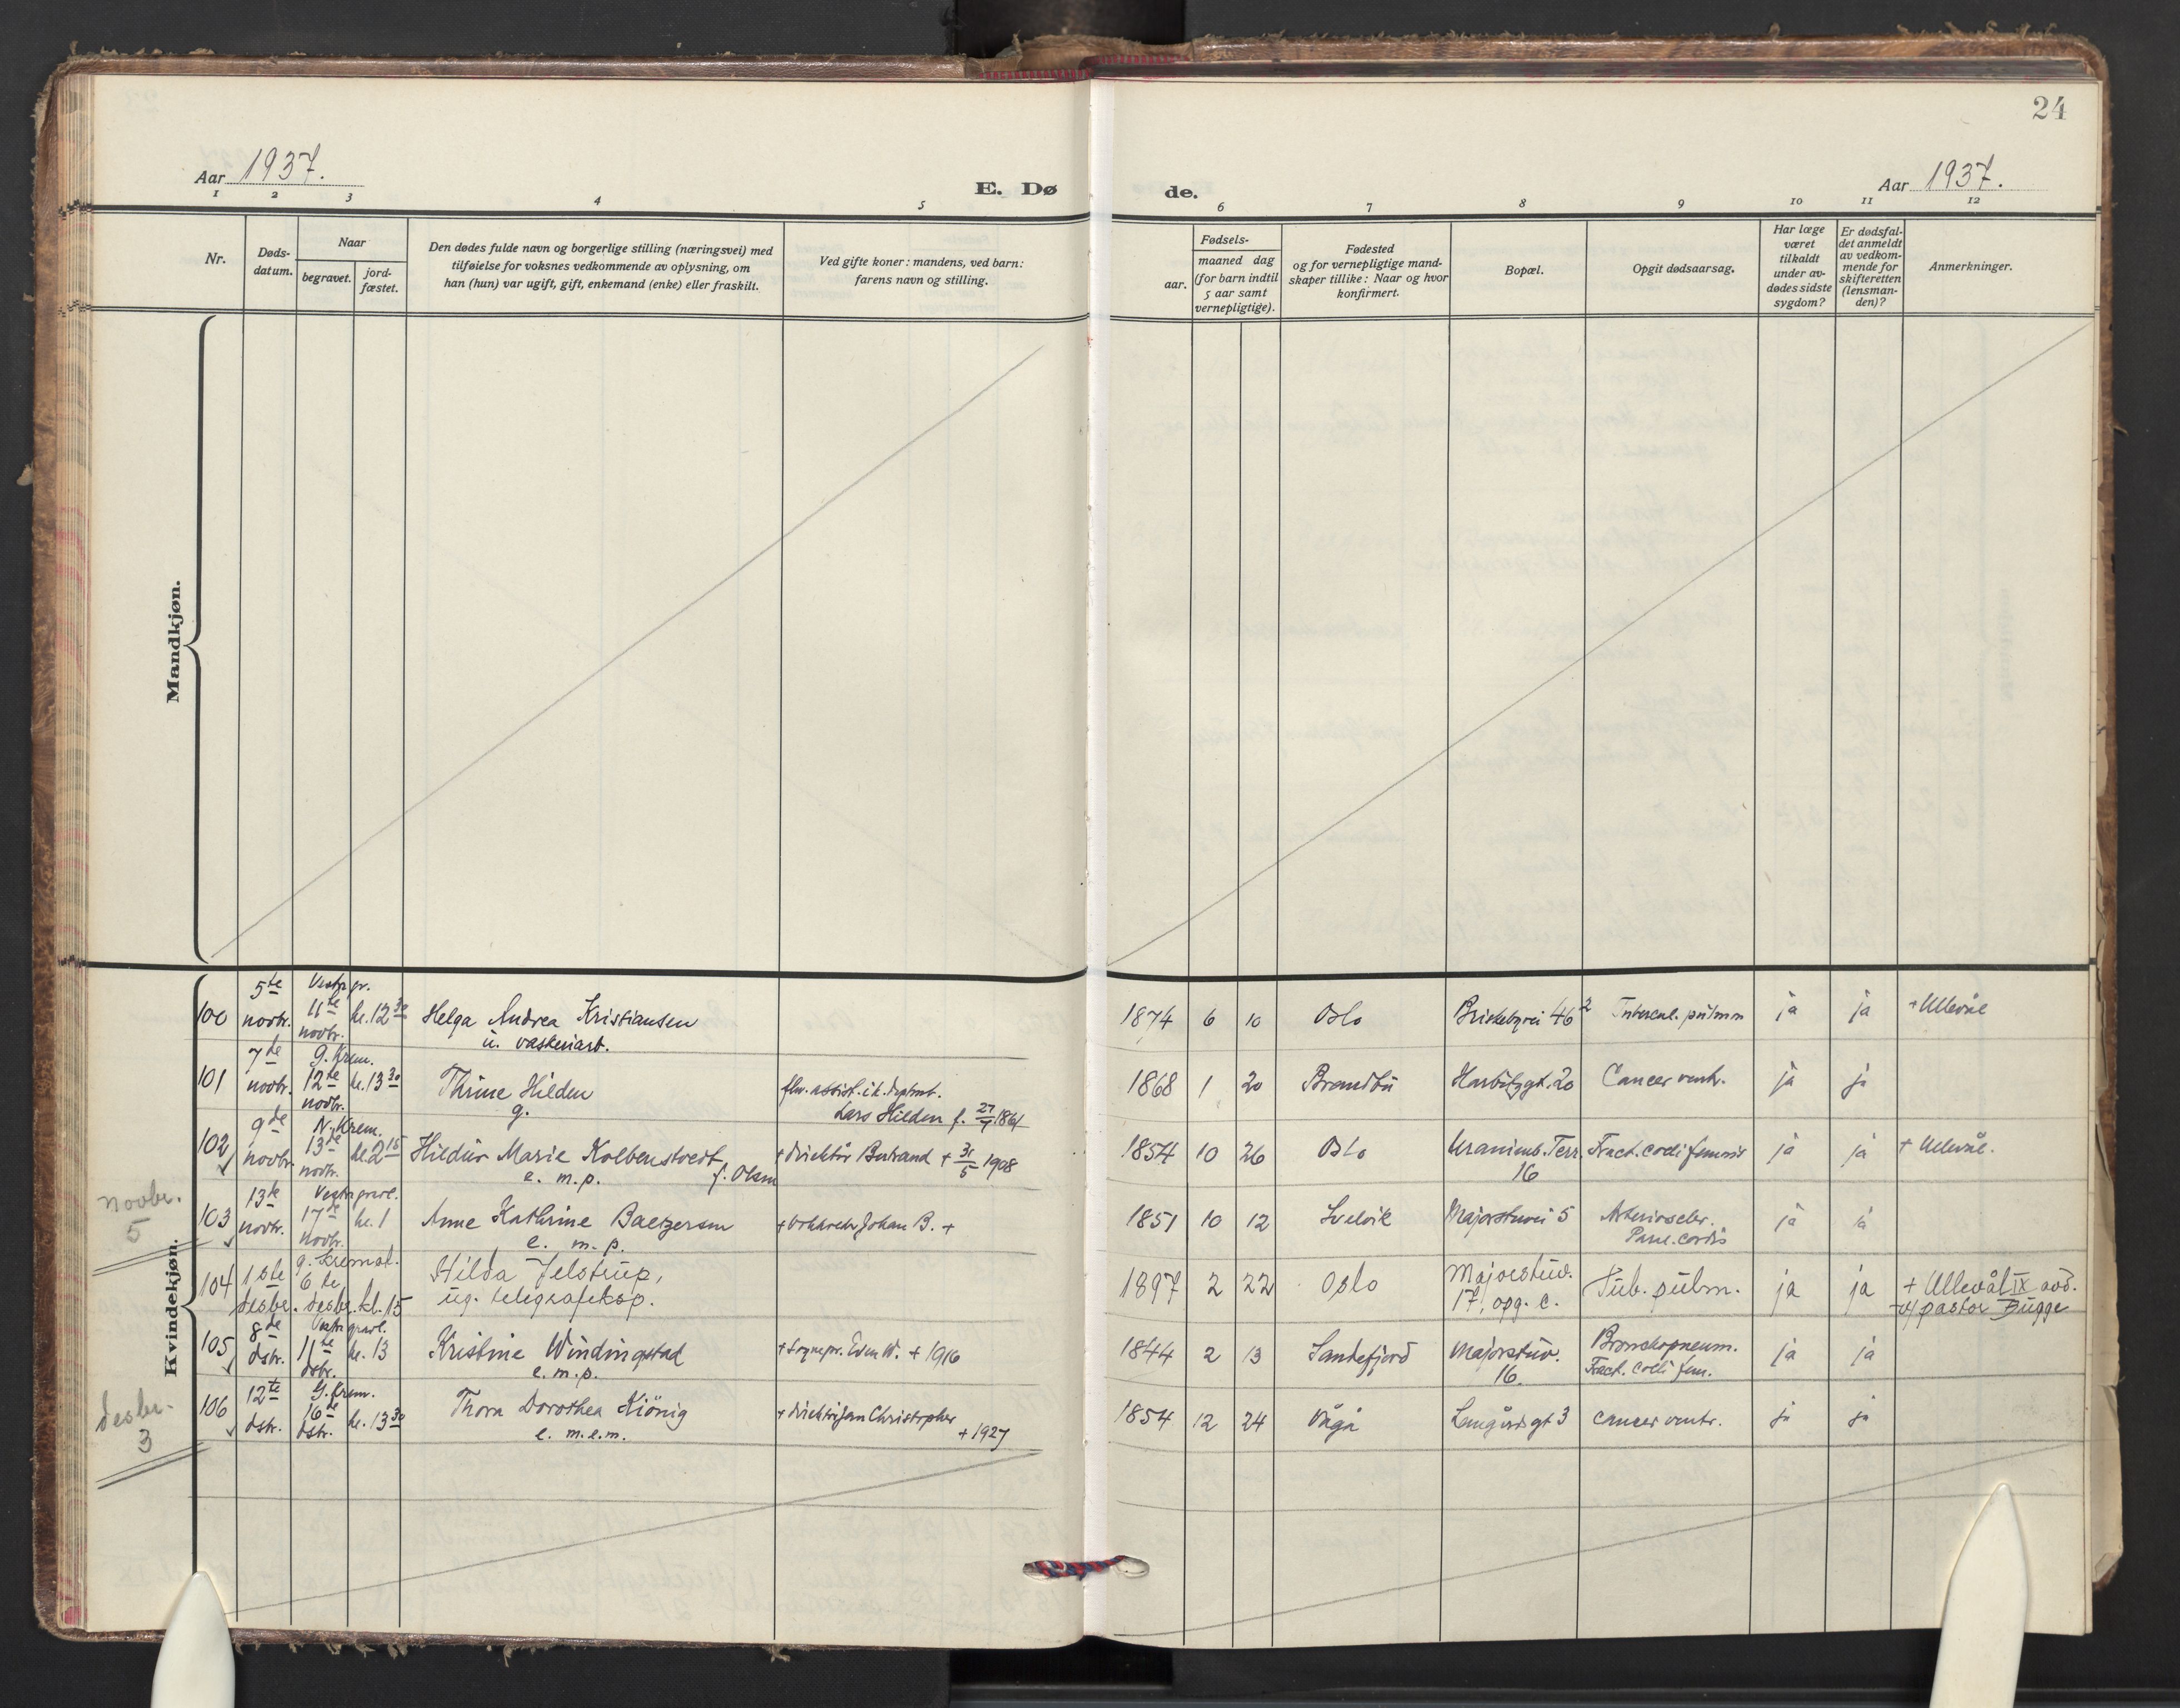 24
Aar 1937.
E. Dø de.
Aar 1937.
1 2 3 4 5 6 7 8 9 10 11 12
Nr.
Døds-
datum.
Naar
begravet.
jord-
fæstet.
Den dødes fulde navn og borgerlige stilling (næringsvei) med
tilføielse for voksnes vedkommende av oplysning, om
han (hun) var ugift, gift, enkemand (enke) eller fraskilt.
Ved gifte koner: mandens, ved barn:
farens navn og stilling.
Fødsels-
aar.
maaned dag
(for barn indtil
5 aar samt
vernepligtige).
Fødested
og for vernepligtige mand-
skaper tillike: Naar og hvor
konfirmert.
Bopæl.
Opgit dødsaarsag.
Har læge
været
tilkaldt
under av-
dødes sidste
sygdom?
Er dødsfal-
det anmeldt
av vedkom-
mende for
skifteretten
(lensman-
den)?
Anmerkninger.
Mandkjøn.
Kvindekjøn.
5te Vestre gr.
100 novbr. 11te novbr. kl. 12 30 Helga Andrea Kristiansen 1874 6 10 Oslo Briskebyvei 46 2 Tubercul. pulmm ja ja + Ullevål
u. vaskeriarb.
7de G. Krem.
101 novbr. 12te novbr. kl. 13 30 Thrine Hilden 1868 1 20 Brandbu Harbitzgt. 20 Cancer ventr. ja ja
g.
fhv. assist. i k. dptmt.
Lars Hilden f. 27/7 1861
9de N. Krem.
102 novbr. 13de novbr. kl. 2 15 Hildur Marie Kolbenstvedt f. Olsen + direktør Bertrand + 31/5 1908 1854 10 26 Oslo Uranienb. Terr. 16 Fract. colli femoris ja ja + Ullevål.
e. m. p.
novbr.
5
13de Vestre gravl.
103 novbr. 17de novbr. kl. 1 Anne Kathrine Baetzersen + Johan B. + 1851 10 12 Svelvik Majorstuvei 5 Arterioscler. ja ja
e. m. p.
Par. cordis
g. Kremat.
104 1ste desbr. 6te desbr. kl. 15 Hilda Jelstrup, 1897 2 22 Oslo Majorstuv. 17, opg. c. Tub. pulm. ja ja + Ullevål IX avd.
ug. telegrafeksp.
v/ pastor Bugge
8de Vestre gravl.
105 dsbr. 11te dsbr. kl. 13 Kristine Windingstad + sognepr. Even W. + 1916 1844 2 13 Sandefjord Majorstuv. 16. Bronchopneum. ja ja
e. m. p.
Fract. colli fem.
desbr.
3
12te G. Krem.
106 dsbr. 16de dsbr. kl. 13 30 Thora Dorothea Kiönig + direktør Jan Christopher + 1927 1854 12 24 Vågå Langårdsgt 3 cancer ventr. ja ja
e. m. e. m.